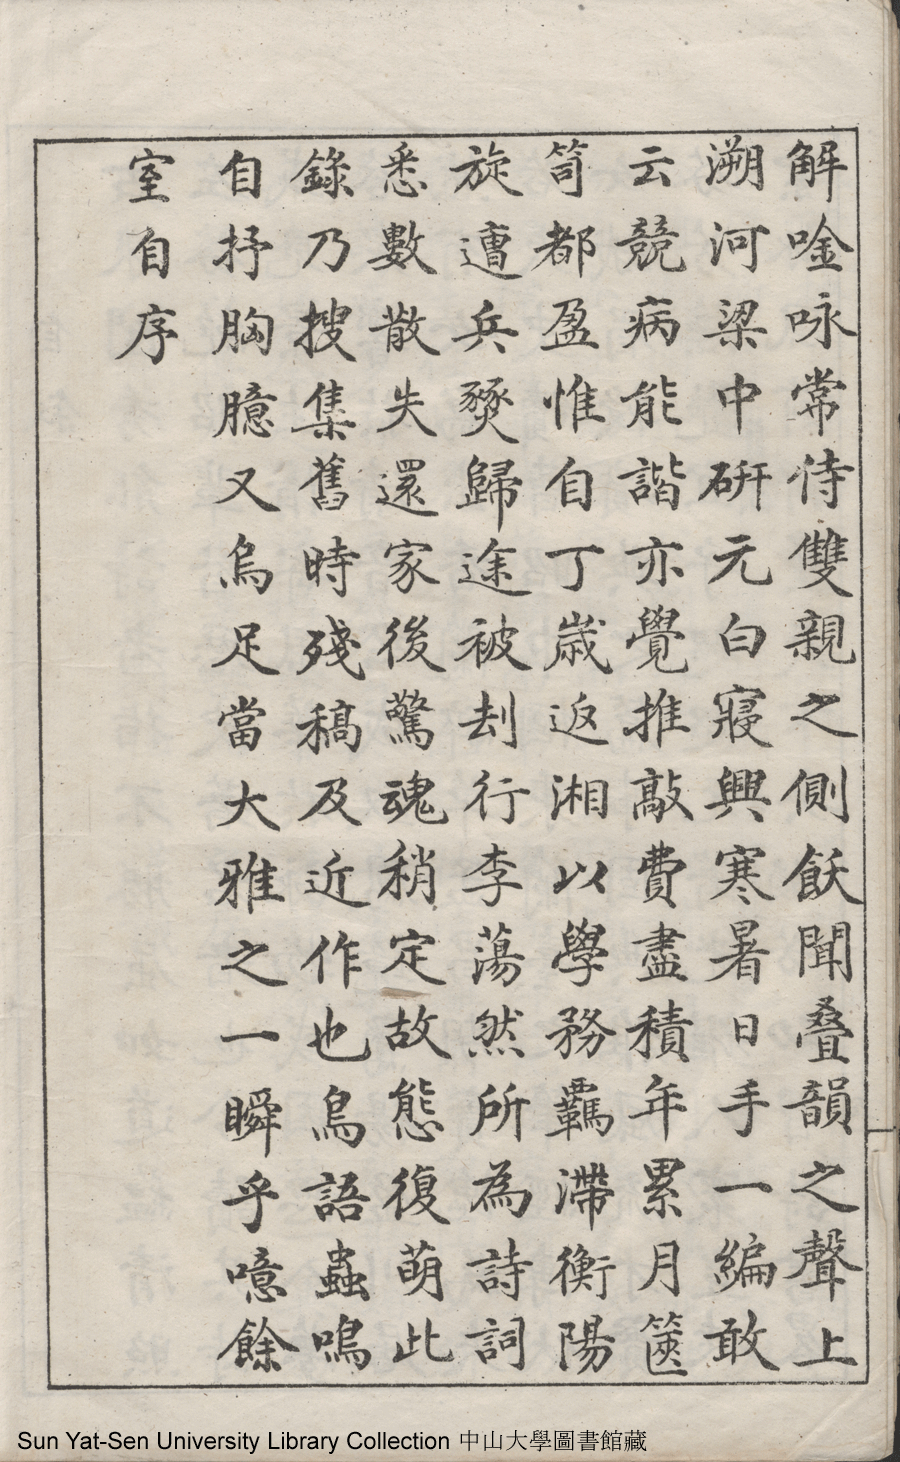 解唫咏常侍雙親之側飫聞叠韻之聲上
溯河梁中硏元白寢興寒暑日手一編敢
云競病能諧亦覺推敲費盡積年累月篋
笥都盈惟自丁歲返湘以學務羈滯衡陽
旋遭兵燹歸途被刦行李蕩然所為詩詞
悉數散失還家後驚魂稍定故態復萌此
錄乃搜集舊時殘稿及近作也鳥語蟲鳴
自抒胸臆又烏足當大雅之一瞬乎噫餘
室自序
Sun Yat-Sen University Library Collection 中山大學圖書館藏